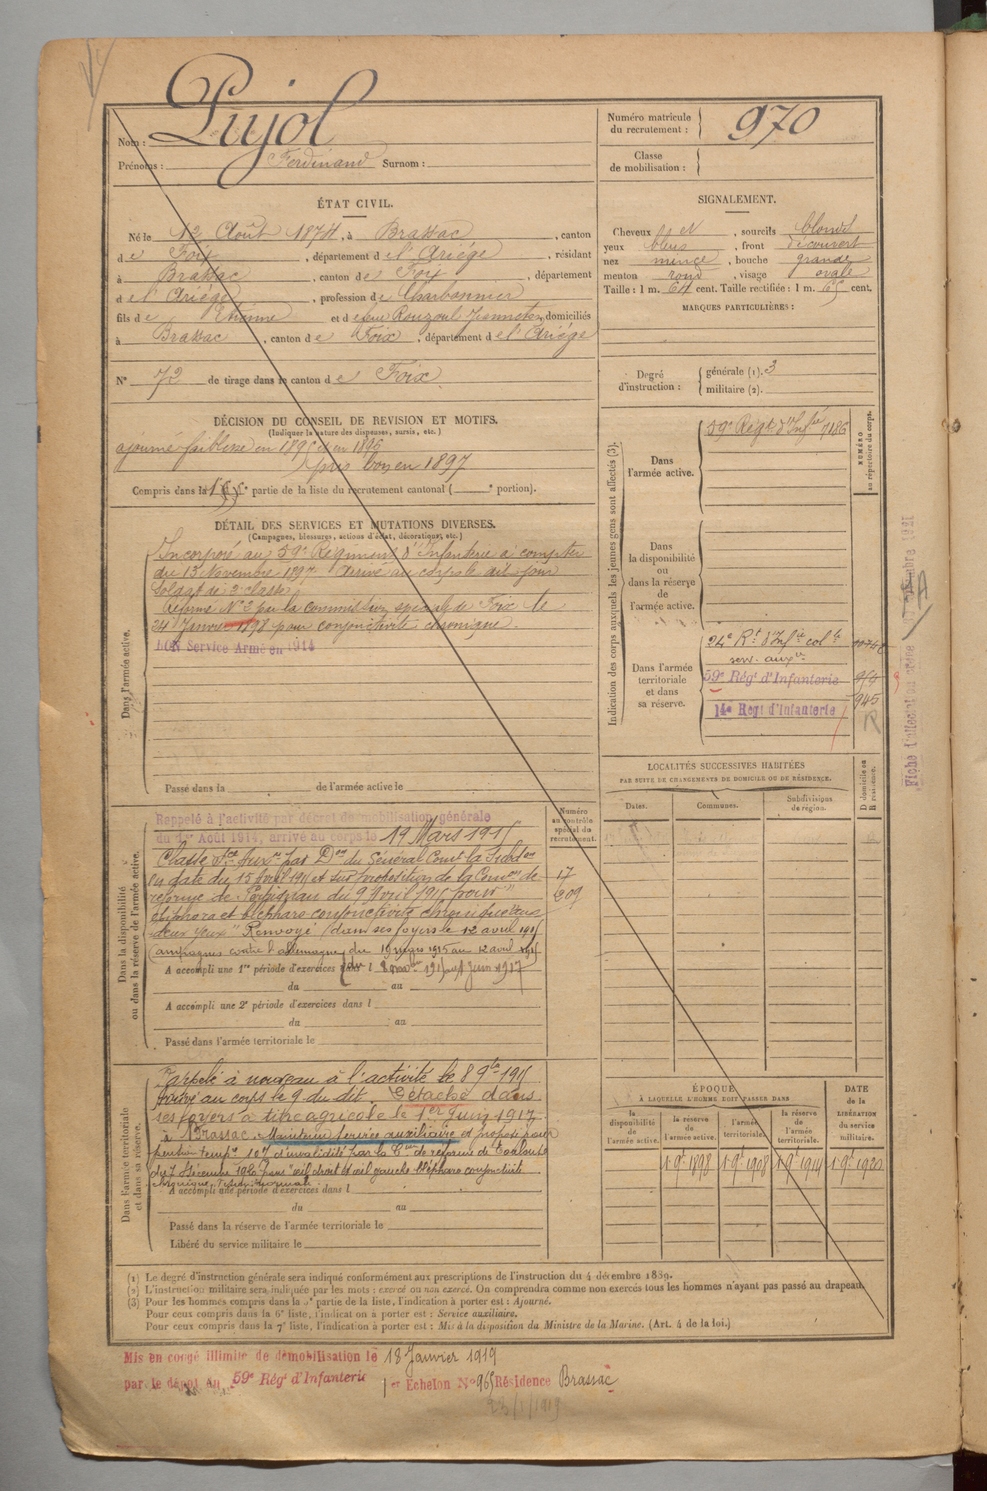 Nom : Pujol
Prénoms : Ferdinand Surnom :
Numéro matricule du recrutement : 970
Classe de mobilisation :
ÉTAT CIVIL.
Né le 12 Août 1874, à Brassac, canton
de Foix, département de l'Ariége, résidant
à Brassac, canton de Foix, département
de l'Ariége, profession de Charbonnier
fils de Etienne et de feue Rouzoul Jeannette, domiciliés
à Brassac, canton de Foix, département de l'Ariége
N° 72 de tirage dans le canton de Foix
SIGNALEMENT.
Cheveux et, sourcils blonds
yeux bleus, front découvert
nez mince, bouche grande
menton rond, visage ovale
Taille : 1 m. 64 cent. Taille rectifiée : 1 m. 65 cent.
MARQUES PARTICULIÈRES :
Degré d'instruction : générale (1). 3
militaire (2).
DÉCISION DU CONSEIL DE REVISION ET MOTIFS.
(Indiquer la nature des dispenses, sursis, etc.)
ajourné faiblesse en 1895 et en 1896
pris bon en 1897
Compris dans la partie de la liste du recrutement cantonal ( portion).
DÉTAIL DES SERVICES ET MUTATIONS DIVERSES.
(Campagnes, blessures, actions d'éclat, décorations, etc.)
Dans l'armée active.
Incorporé au 59e Régiment d'Infanterie à compter
du 13 Novembre 1897. Arrivé au corps le dit jour
Soldat de 2e classe
Réformé N° 2 par la commission spéciale de Foix le
24 Janvier 1898 pour conjonctivite chronique.
Bon Service Armé en 1914
Passé dans la de l'armée active le
Indication des corps auxquels les jeunes gens sont affectés (3).
NUMÉRO au répertoire du corps.
Dans l'armée active.
59e Régt d'Infie 7186
Dans la disponibilité ou dans la réserve de l'armée active.
Dans l'armée territoriale et dans sa réserve.
24e Rt d'Infie colle
serv. auxre
59e Régt d'Infanterie
14e Regt d'Infanterie
945
R
LOCALITÉS SUCCESSIVES HABITÉES
PAR SUITE DE CHANGEMENTS DE DOMICILE OU DE RÉSIDENCE.
Dates.
Communes.
Subdivisions de région.
D domicile ou R résidence.
Dans la disponibilité ou dans la réserve de l'armée active.
Numéro au contrôle spécial du recrutement.
Rappelé à l'activité par décret de mobilisation générale
du 1er Août 1914, arrivé au corps le 19 Mars 1915
Classé Sce Auxre par Don du Général Comt la Subdon
en date du 15 Avril 1915 et sur proposition de la Comon de
réforme de Perpignan du 9 Avril 1915 pour "
épiphora et blépharo conjonctivite chronique des
deux yeux" Renvoyé dans ses foyers le 12 avril 1915
Campagnes contre l'allemagne, du 19 mars 1915 au 12 avril 1915
A accompli une 1re période d'exercices dans l
du au
A accompli une 2e période d'exercices dans l
du au
Passé dans l'armée territoriale le
17
609
Dans l'armée territoriale et dans sa réserve.
Rappelé à nouveau à l'activité le 8 9bre 1915
Arrivé au corps le 9 du dit. Détaché dans
ses foyers à titre agricole le 1er Juin 1917
à Brassac. Maintenu service auxiliaire et proposé pour
pension tempre 10% d'invalidité par la Con de réforme de Toulouse
du 7 Décembre 1920 pour
A accompli une période d'exercices dans l
du au
Passé dans la réserve de l'armée territoriale le
Libéré du service militaire le
ÉPOQUE
À LAQUELLE L'HOMME DOIT PASSER DANS
la disponibilité de l'armée active.
la réserve de l'armée active.
l'armée territoriale.
la réserve de l'armée territoriale.
DATE de la LIBÉRATION du service militaire.
1 9e 1898 1 9e 1908 1 9e 1914 1 9e 1920
(1) Le degré d'instruction générale sera indiqué conformément aux prescriptions de l'instruction du 4 décembre 1889.
(2) L'instruction militaire sera indiquée par les mots : exercé ou non exercé. On comprendra comme non exercés tous les hommes n'ayant pas passé au drapeau.
(3) Pour les hommes compris dans la 5e partie de la liste, l'indication à porter est : Ajourné.
Pour ceux compris dans la 6e liste, l'indication à porter est : Service auxiliaire.
Pour ceux compris dans la 7e liste, l'indication à porter est : Mis à la disposition du Ministre de la Marine. (Art. 4 de la loi.)
Mis en congé illimité de démobilisation le 18 Janvier 1919
par le dépôt du 59e Régt d'Infanterie 1er Echelon N° 965 Résidence Brassac
23/1/1919